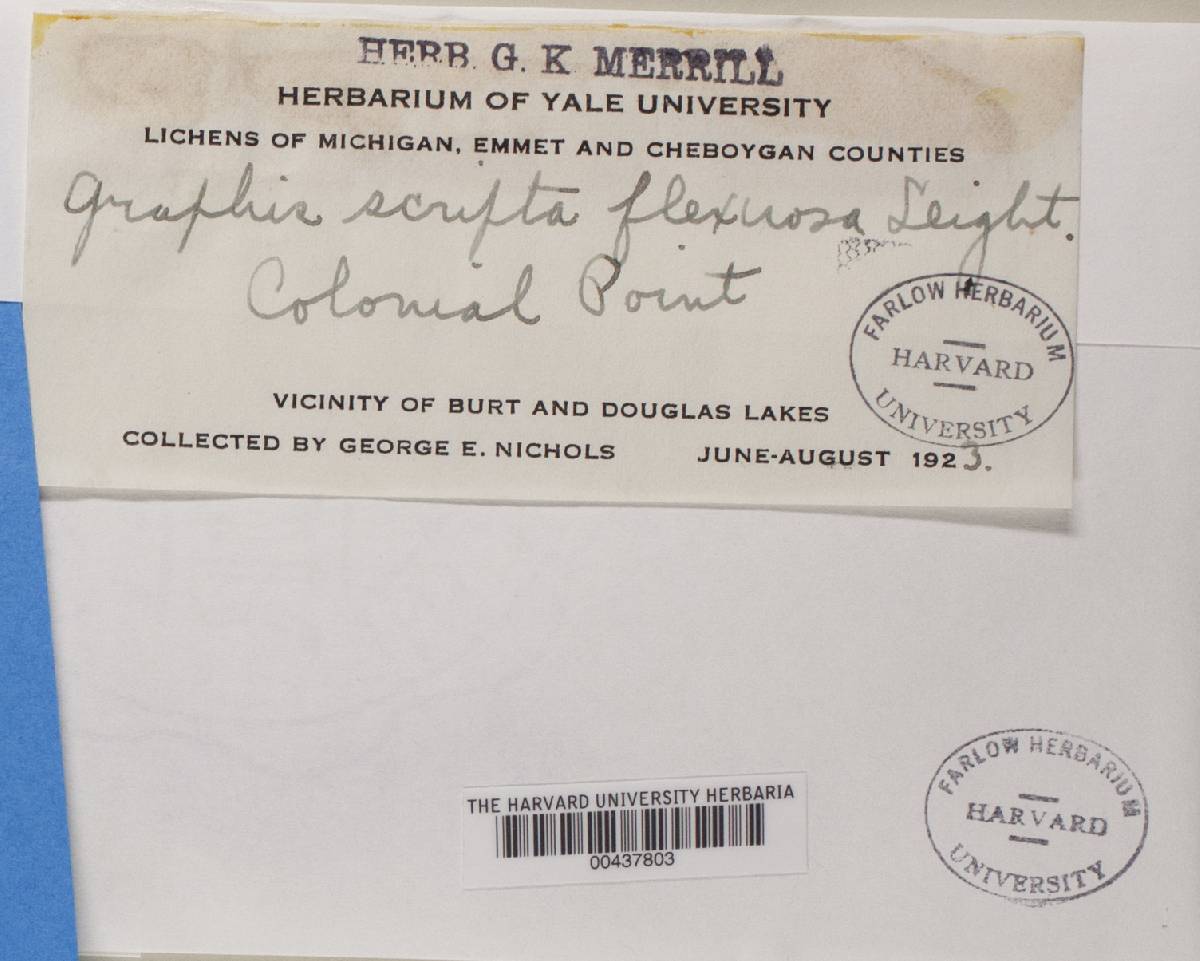 HERB. G. K. MERRILL
HERBARIUM OF YALE UNIVERSITY
LICHENS OF MICHIGAN, EMMET AND CHEBOYGAN COUNTIES
Graphis scripta flexuosa Leight.
Colonial Point
FARLOW HERBARIUM
HARVARD
UNIVERSITY
VICINITY OF BURT AND DOUGLAS LAKES
COLLECTED BY GEORGE E. NICHOLS JUNE-AUGUST 1923.
THE HARVARD UNIVERSITY HERBARIA
00437803
FARLOW HERBARIUM
HARVARD
UNIVERSITY